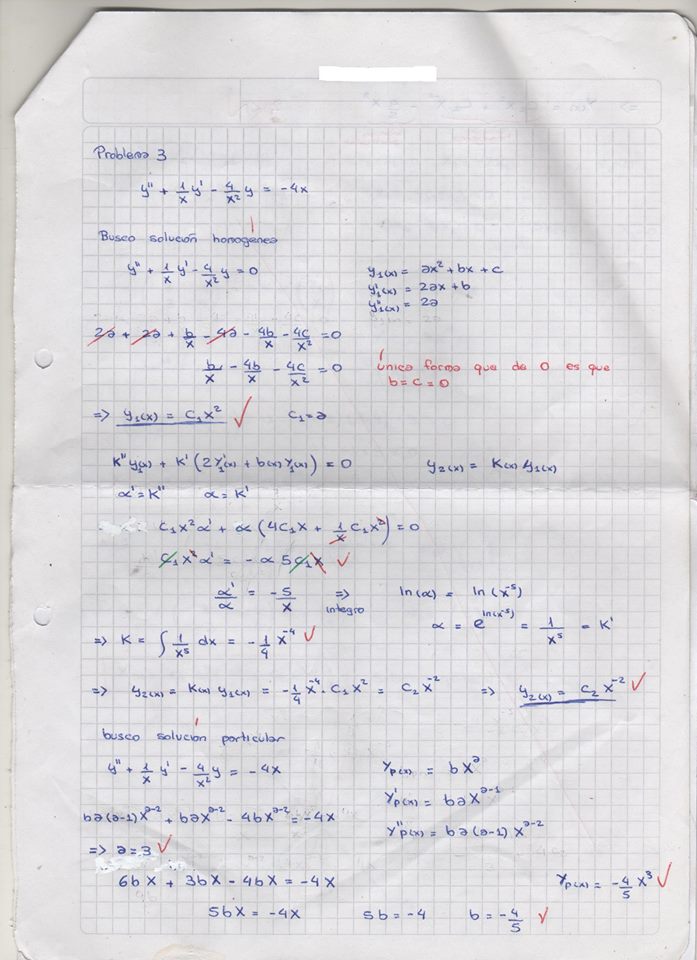 Problema 3
y'' + 1/x y' - 4/x² y = -4x
Busco solución homogénea
y'' + 1/x y' - 4/x² y = 0
y₁(x) = ax² + bx + c
y₁'(x) = 2ax + b
y₁''(x) = 2a
2a + 2a + b/x - 4a - 4b/x - 4c/x² = 0
b/x - 4b/x - 4c/x² = 0
única forma que de 0 es que
b = c = 0
=> y₁(x) = C₁x² ✓ C₁ = a
K'' y₁(x) + K' (2y₁'(x) + b(x) y₁(x)) = 0 y₂(x) = K(x) y₁(x)
α' = K'' α = K'
C₁x²α' + α (4C₁x + 1/x C₁x²) = 0
C₁x²α' = - α 5C₁x ✓
α'/α = -5/x => integro ln(α) = ln(x⁻⁵)
α = e^ln(x⁻⁵) = 1/x⁵ = K'
=> K = ∫ 1/x⁵ dx = -1/4 x⁻⁴ ✓
=> y₂(x) = K(x) y₁(x) = -1/4 x⁻⁴ · C₁x² = C₂x⁻² => y₂(x) = C₂x⁻² ✓
busco solución particular
y'' + 1/x y' - 4/x² y = -4x
Yp(x) = bxᵃ
Y'p(x) = baxᵃ⁻¹
Y''p(x) = ba(a-1)xᵃ⁻²
ba(a-1)xᵃ⁻² + baxᵃ⁻² - 4bxᵃ⁻² = -4x
=> a = 3 ✓
6bx + 3bx - 4bx = -4x
Yp(x) = -4/5 x³ ✓
5bx = -4x 5b = -4 b = -4/5 ✓